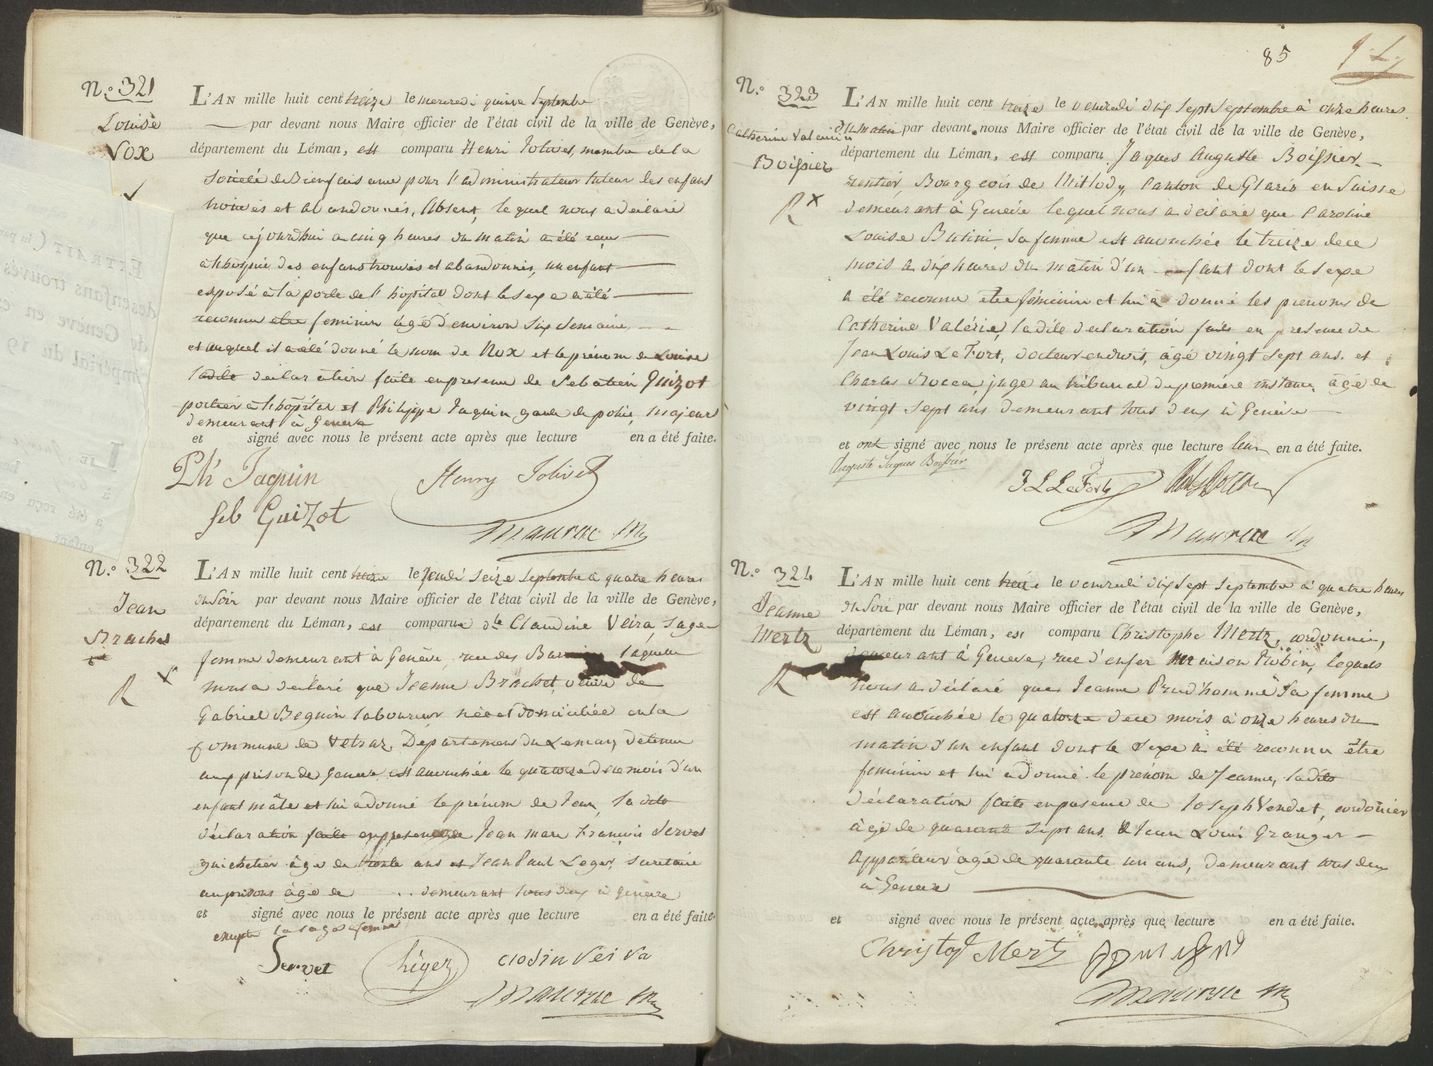 N.o 321
Louise
Nox
L'AN mille huit cent treize le mercredi quinze Septembre
par devant nous Maire officier de l'état civil de la ville de Genève,
département du Léman, est comparu Henri Jolivet, membre de la
société de Bienfaisance pour l'administrateur tuteur des enfans
trouvés et abandonnés, absent, lequel nous a déclaré
que cejourdhui a cinq heures du matin a été reçu
à l'hospice des enfans trouvés et abandonnés, un enfant
exposé à la porte de l'hôpital dont le sexe a été
reconnu être feminin âgé d'environ six semaine,
et auquel il a été donné le nom de Nox et le prénom de Louise
ladite déclaration faite en presence de Sebatien Guizot
portier à l'hôpital et Philippe Jaquin, garde de police, majeurs
demeurant à Geneve
et signé avec nous le présent acte après que lecture en a été faite.
Ph Jaquin
Henry Jolivet
Seb Guizot
Maurice
EXTRAIT
des enfans trouvés
de Genève en
impérial du 19
LE
a été reçu
enfant
N.o 322
Jean
Braches
R x
L'AN mille huit cent treize le Jeudi seize septembre à quatre heures
du soir par devant nous Maire officier de l'état civil de la ville de Genève,
département du Léman, est comparue dle Claudine Veira sage
femme demeurant à Genève, rue des laquelle
nous a déclaré que Jeanne Brachet, veuve de
Gabriel Beguin laboureur née et domiciliée en la
commune de Vetraz, Departement du Leman, detenue
aux prison de Geneve est accouchée le quatorze de ce mois d'un
enfant mâle et lui a donné le prénom de Jean, ladite
déclaration faite en presence de Jean marc François Servet
guichetier âgé de trente ans et Jean Paul Leger, secretaire
au prisons âgé de . . . demeurant tous deux à Geneve
et signé avec nous le présent acte après que lecture en a été faite.
excepté la sage femme
Servet
clodin Veira
Maurice
85
N.o 323
Catherine Valérie
Boissier
R x
L'AN mille huit cent treize le vendredi dix sept septembre à onze heures
du matin par devant nous Maire officier de l'état civil de la ville de Genève,
département du Léman, est comparu Jaques Auguste Boissier
rentier, Bourgeois de Mitlody Canton de Glaris en Suisse
demeurant à Genève lequel nous a déclaré que Caroline
Louise Butini, sa femme est accouchée le treize de ce
mois à dix heures du matin d'un enfant dont le sexe
a été reconnu être féminin et lui a donné les prenoms de
Catherine Valérie, ladite déclaration faite en presence de
Jean Louis Le Fort, docteur en droit, âgé vingt sept ans et
Charles Rocca juge au tribunal de première instance âgé de
vingt sept ans demeurant tous deux à Genève
et ont signé avec nous le présent acte après que lecture leur en a été faite.
Auguste Jaques Boissier
J L LeFort
Maurice
N.o 324
Jeanne
Mertz
R
L'AN mille huit cent treize le vendredi dix sept septembre à quatre heures
du soir par devant nous Maire officier de l'état civil de la ville de Genève,
département du Léman, est comparu Christophe Mertz, cordonnier,
demeurant à Geneve, rue d'enfer maison Rubin, lequel
nous a déclaré que Jeanne Prud'homme sa femme
est accouchée le quatorze de ce mois à onze heures du
matin d'un enfant dont le sexe a été reconnu être
feminin et lui a donné le prénom de Jeanne, ladite
déclaration faite en presence de Joseph Vendet, cordonier
âgé de quarante sept ans & Jean Louis Granger
appariteur âgé de quarante un ans, demeurant tous deux
à Geneve
et signé avec nous le présent acte après que lecture en a été faite.
Christoph Mertz
Maurice